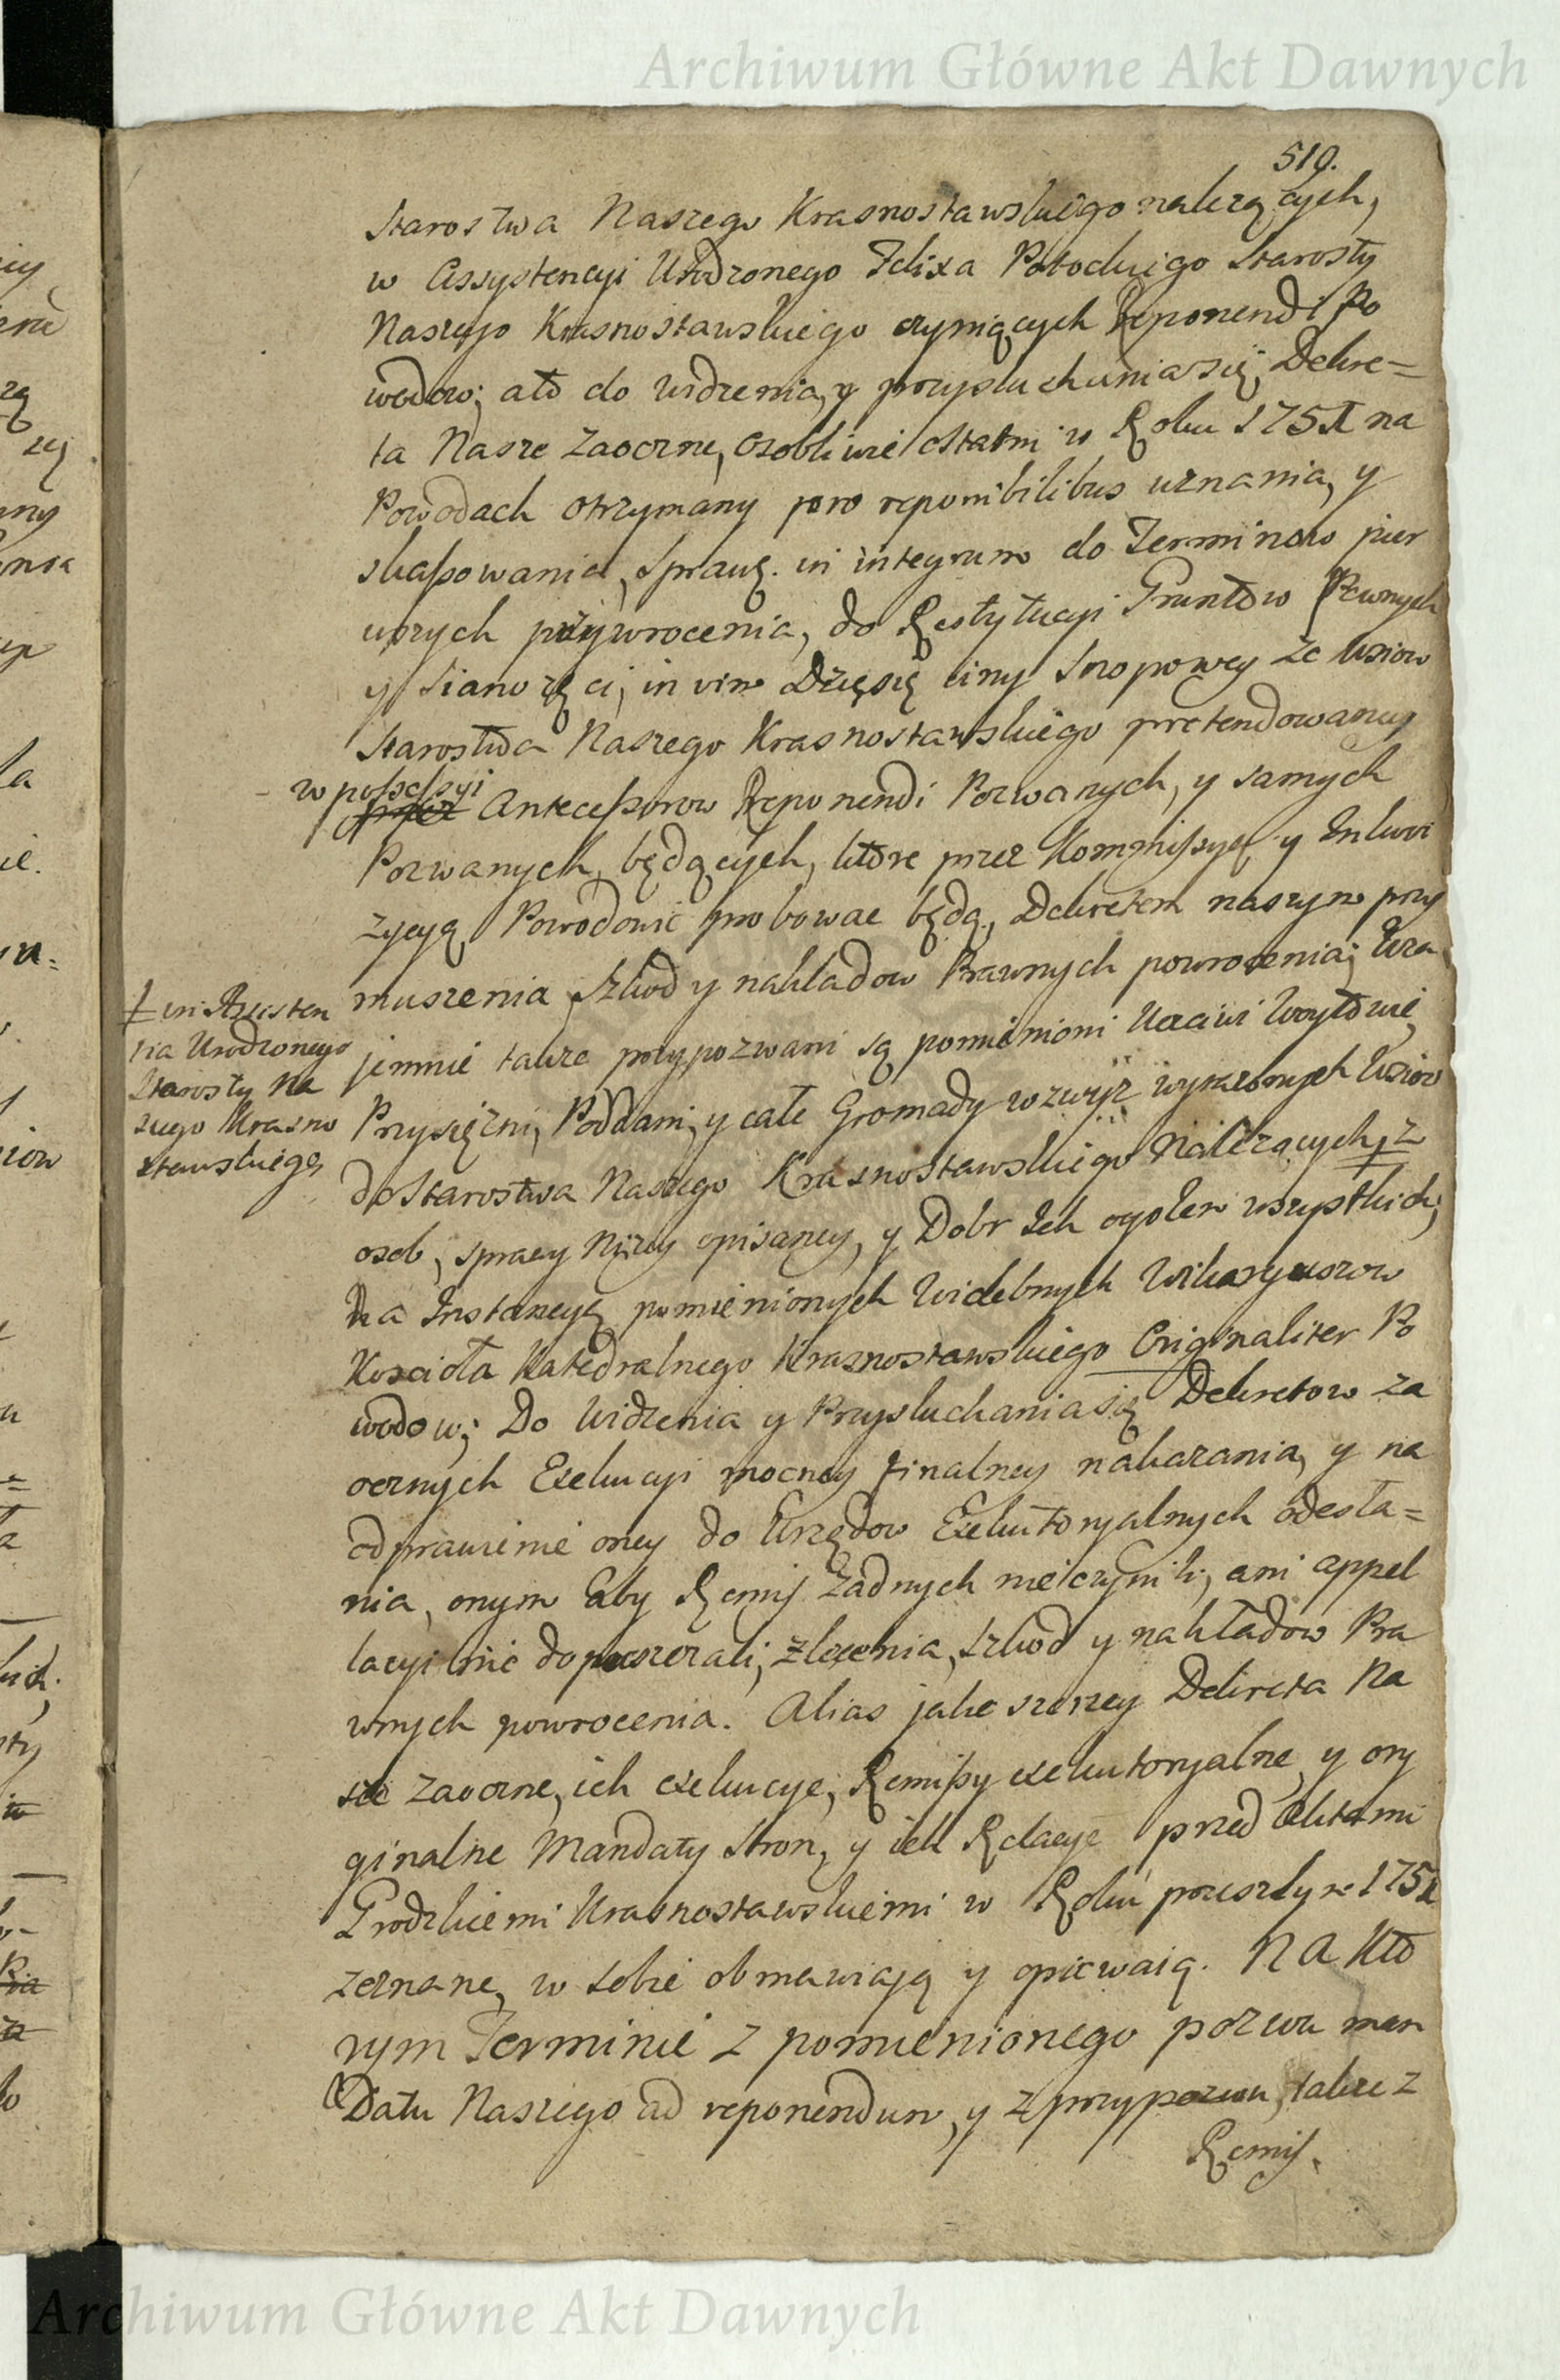 Archiwum Główne Akt Dawnych
519.
Starostwa Naszego Krasnostawskiego należących,
w Assystencyi Urodzonego Felixa Potockiego Starosty
Naszego Krasnostawskiego czyniących Reponendi Po
wodow; ato do widzenia, y przysłuchania się, Dekre=
ta Nasze Zaoczne, osobliwie ostatni w Roku 1751 na
Powodach otrzymany pro reponibilibus uznania, y
skaßowania, Sprawę in integrum do Terminow pier
wszych przywrocenia, do Restytucyi Gruntow Pewnych
y Sianożęci, in vim Dzięsięciny Snopowey ze wsiow
Starostwa Naszego Krasnostawskiego pretendowaney
w poßeßyi Anteceßorow Reponendi Pozwanych, y samych
Pozwanych, będących, ktore przez Kommißyą y Inkwi
zycyą Powodowie probować będą, Dekretem naszym przy
muszenia, szkod y nakładow Prawnych powrocenia; Wza
jemnie także przypozwani są pomienioni Uczciwi Woytowie,
Przysiężni, Poddani, y całe Gromady wzwyż wyrażonych Wsiow
do Starostwa Naszego Krasnostawskiego Należących, ‡ z
‡ in Assisten
tia Urodzonego
Starosty Na
szego Krasno
stawskiego
osob, sprawy Niżey opisaney, y Dobr Ich ogołem wszystkich;
Na Instancyą pomienionych Wielebnych Wikaryuszow
Kościoła Katedralnego Krasnostawskiego Originaliter Po
wodow; Do Widzenia y Przysłuchania się Dekretow za
ocznych Exekucyi mocney finalney nakazania, y na
odprawienie oney do Urzędow Exekutoryalnych odesła=
nia, onym Aby Remiß żadnych nie czynili, ani appel
lacyi nie dopuszczali, zlecenia, szkod y nakładow Pra
wnych powrocenia. Alias jako szerzey Dekreta Na
sze zaoczne, ich exekucye, Remißy exekutoryalne, y ory
ginalne Mandaty stron, y ich Relacye przed Aktami
Grodzkiemi Krasnostawskiemi w Roku przeszłym 1751
zeznane, w sobie obmawiają y opiewaią. NA Kto
rym Terminie z pomienionego pozwu man
Datu Naszego ad reponendum, y z przypozwu, także z
Remiß.
Archiwum Główne Akt Dawnych